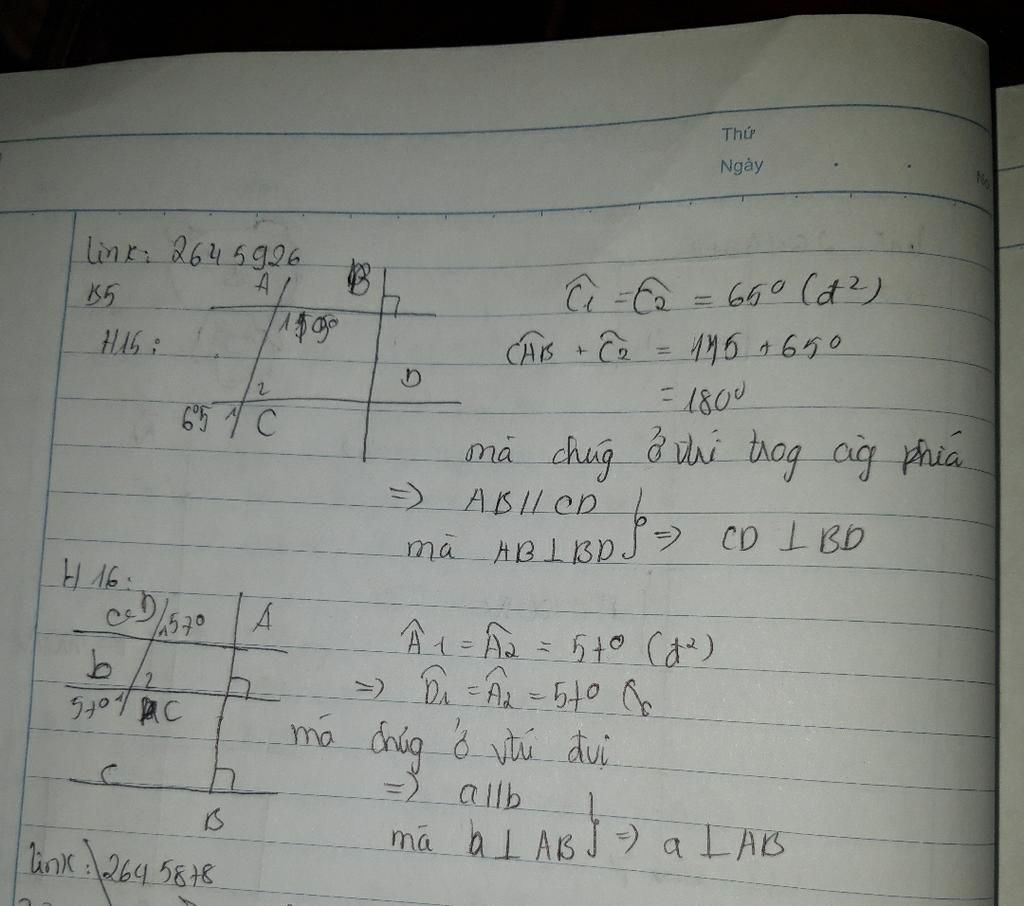 Thứ
Ngày
No
link: 2645926
B5
H15:
A
B
1
D
65 1
2
C
Ĉ1 = Ĉ2 = 65⁰ (đ²)
CÂB + Ĉ2 = 115 + 65⁰
= 180⁰
mà chúg ở vtrí trog cùg phía
=> AB // CD
mà AB ⊥ BD } => CD ⊥ BD
H16:
D
1 57⁰
A
b
2
57⁰ 1
C
c
B
Â1 = Â2 = 57⁰ (đ²)
=> D̂1 = Â2 = 57⁰
mà chúg ở vtrí đvị
=> a // b
mà b ⊥ AB } => a ⊥ AB
link: 2645878